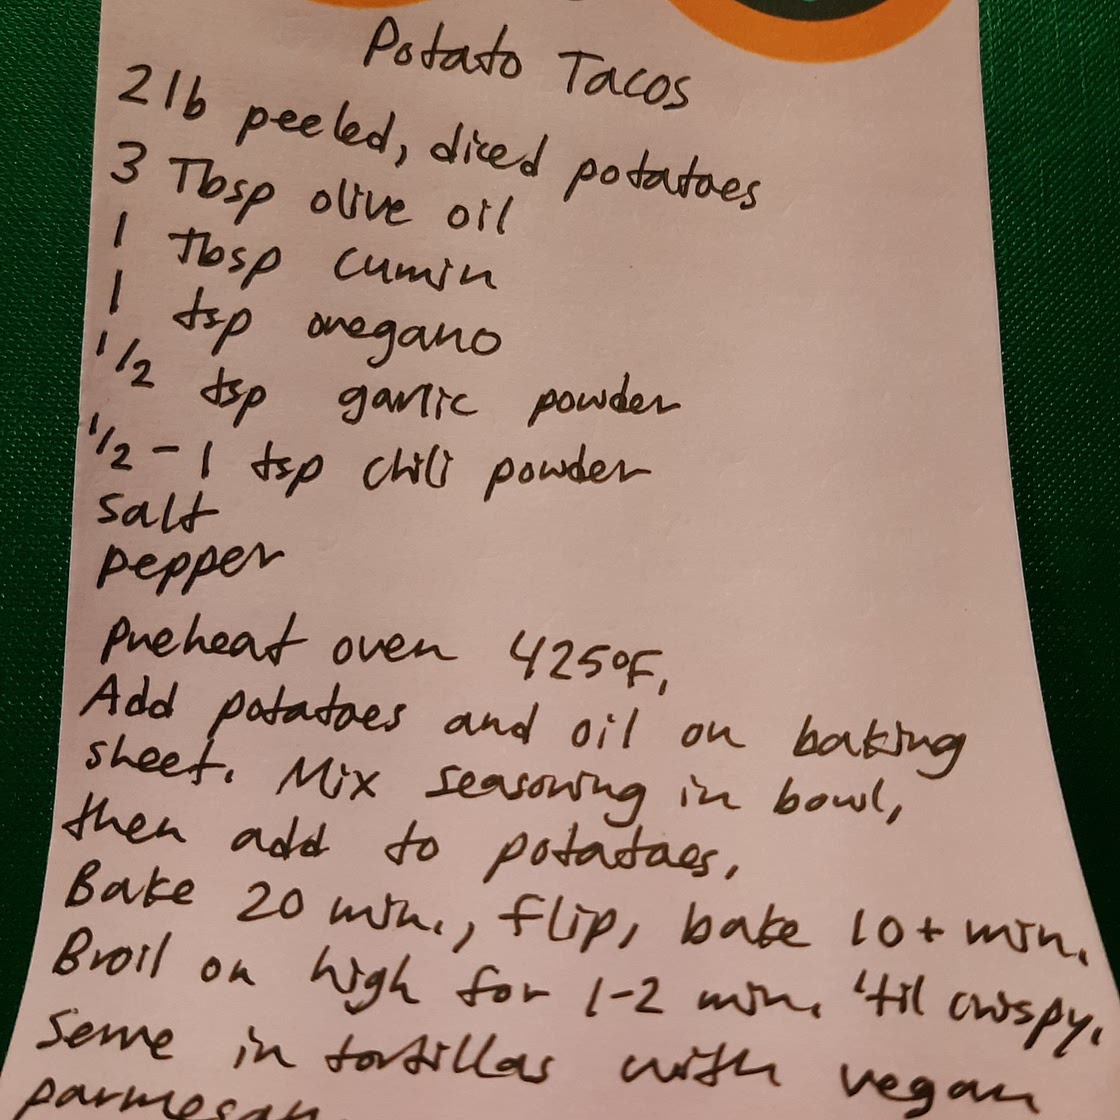 Potato Tacos
2 lb peeled, diced potatoes
3 Tbsp olive oil
1 Tbsp cumin
1 tsp oregano
1/2 tsp garlic powder
1/2 - 1 tsp chili powder
salt
pepper
preheat oven 425°F,
Add potatoes and oil on baking
sheet. Mix seasoning in bowl,
then add to potatoes,
Bake 20 min., flip, bake 10+ min.
Broil on high for 1-2 min. 'til crispy.
Serve in tortillas with vegan
parmesan.